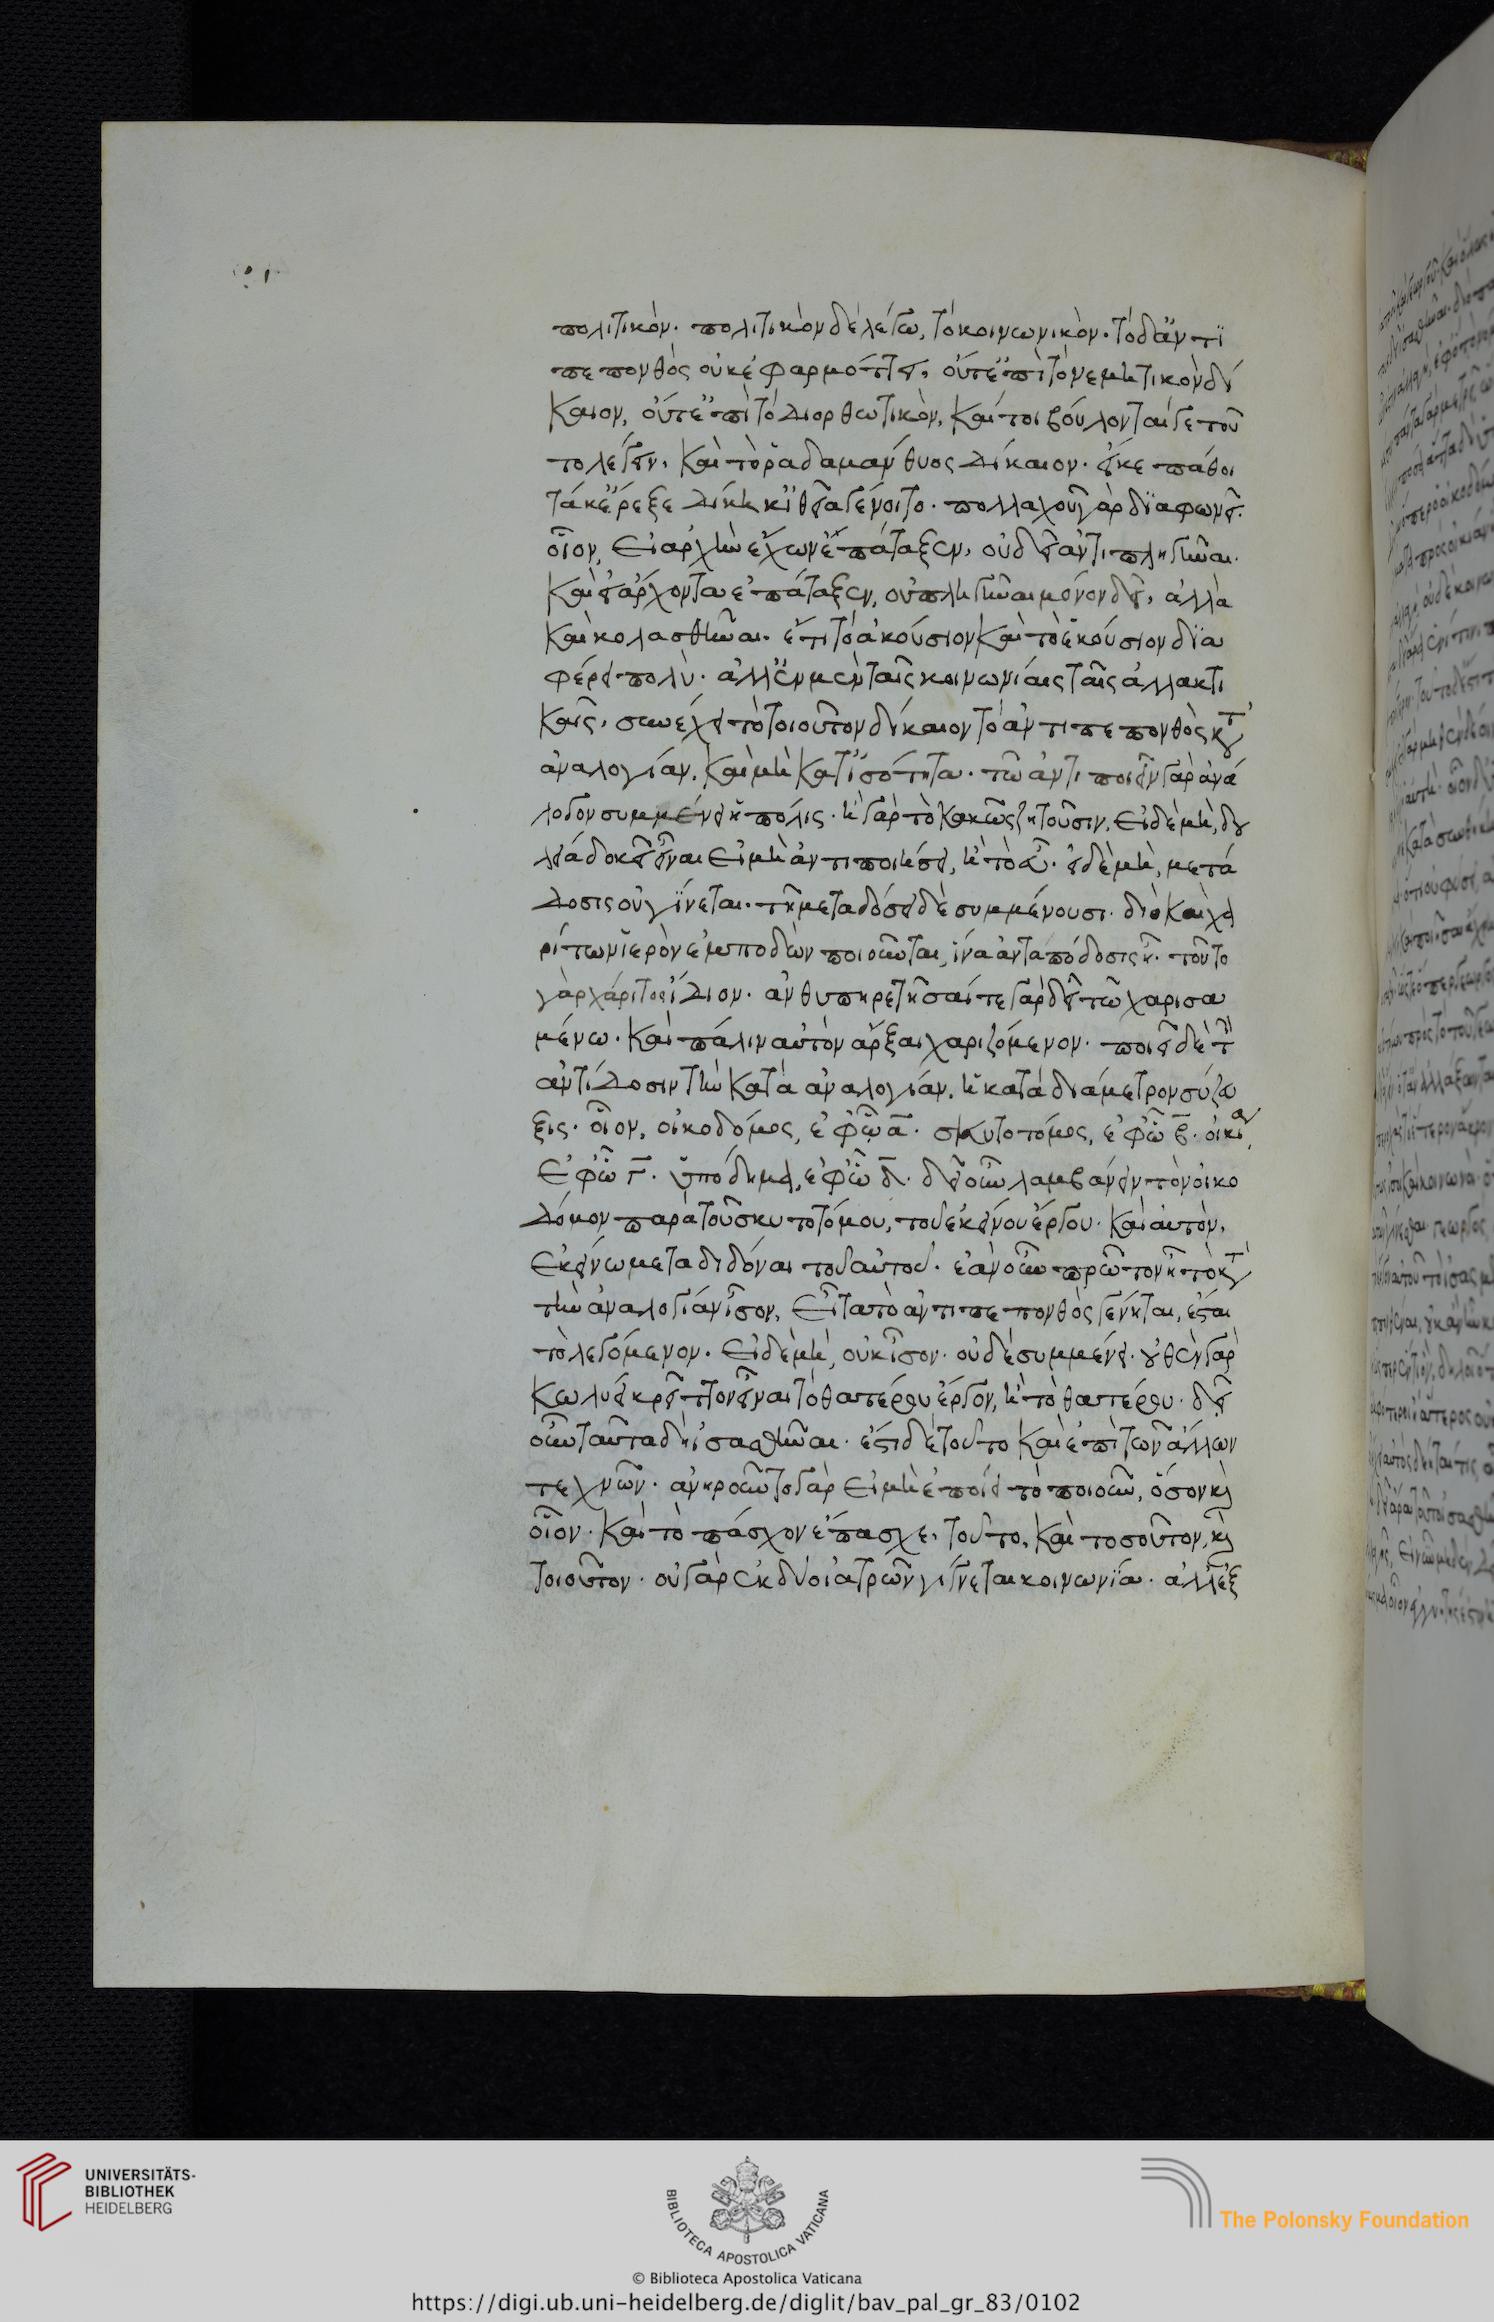 πολιτικόν. πολιτικὸν δὲ λέγω, τὸ κοινωνικὸν. τὸ δ' ἀντι
πεπονθὸς οὐκ ἐφαρμόττει, οὔτε ἐπὶ τὸ νεμητικὸν δί
καιον, οὔτε ἐπὶ τὸ διορθωτικὸν, καί τοι βούλονταί γε τοῦ
το λέγειν, καὶ τὸ ῥαδαμανθυος δίκαιον. εἴκε πάθοι
τά κ' ἔρεξε δίκη κ' ἰθεῖα γένοιτο. πολλαχοῦ γὰρ διαφωνεῖ.
οἷον, εἰ ἀρχὴν ἔχων ἐπάταξεν, οὐ δεῖ ἀντιπληγῆναι.
καὶ εἰ ἄρχοντα ἐπάταξεν, οὐ πληγῆναι μόνον δεῖ, ἀλλὰ
καὶ κολασθῆναι. ἔτι τὸ ἀκούσιον καὶ τὸ ἑκούσιον δια
φέρει πολὺ. ἀλλ' ἐν μὲν ταῖς κοινωνίαις ταῖς ἀλλακτι
καῖς, συνέχει τὸ τοιοῦτον δίκαιον τὸ ἀντιπεπονθὸς κατ'
ἀναλογίαν, καὶ μὴ κατ' ἰσότητα. τῷ ἀντιποιεῖν γὰρ ἀνά
λογον συμμένει ἡ πόλις. ἢ γὰρ τὸ κακῶς ζητοῦσιν, εἰ δὲ μὴ, δου
λεία δοκεῖ εἶναι εἰ μὴ ἀντιποιήσει, ἢ τὸ εὖ. εἰ δὲ μὴ, μετά
δοσις οὐ γίνεται. τῇ μεταδόσει δὲ συμμένουσι. διὸ καὶ χα
ρίτων ἱερὸν ἐμποδὼν ποιοῦνται, ἵνα ἀνταπόδοσις ᾖ. τοῦτο
γὰρ χάριτος ἴδιον. ἀνθυπηρετῆσαί τε γὰρ δεῖ τῷ χαρισα
μένω. καὶ πάλιν αὐτὸν ἄρξαι χαριζόμενον. ποιεῖ δὲ τὴν
ἀντίδοσιν τὴν κατὰ ἀναλογίαν, ἡ κατὰ διάμετρον σύζευ
ξις. οἷον, οἰκοδόμος, ἐφ' ᾧ α. σκυτοτόμος, ἐφ' ᾧ β. οἰκία,
ἐφ' ᾧ γ. ὑπόδημα, ἐφ' ᾧ δ. δεῖ οὖν λαμβάνειν τὸν οἰκο
δόμον παρὰ τοῦ σκυτοτόμου, τοῦ ἐκείνου ἔργου. καὶ αὐτὸν,
ἐκείνω μεταδιδόναι τοῦ αὐτοῦ. ἐὰν οὖν πρῶτον ᾖ τὸ κατὰ
τὴν ἀναλογίαν ἴσον, εἶτα τὸ ἀντιπεπονθὸς γένηται, ἔσται
τὸ λεγόμενον. εἰ δὲ μὴ, οὐκ ἴσον. οὐδὲ συμμένει. οὐθὲν γὰρ
κωλύει κρεῖττον εἶναι τὸ θατέρου ἔργον, ἢ τὸ θατέρου. δεῖ
οὖν ταῦτα δὴ ἰσασθῆναι. ἔστι δὲ τοῦτο καὶ ἐπὶ τῶν ἄλλων
τεχνῶν. ἀνῃροῦντο γὰρ εἰ μὴ ἐποίει τὸ ποιοῦν, ὅσον καὶ
οἷον. καὶ τὸ πάσχον ἔπασχε, τοῦτο, καὶ τοσοῦτον, καὶ
τοιοῦτον. οὐ γὰρ ἐκ δύο ἰατρῶν γίγνεται κοινωνία. ἀλλ' ἐξ
UNIVERSITÄTS-
BIBLIOTHEK
HEIDELBERG
BIBLIOTECA APOSTOLICA VATICANA
© Biblioteca Apostolica Vaticana
The Polonsky Foundation
https://digi.ub.uni-heidelberg.de/diglit/bav_pal_gr_83/0102